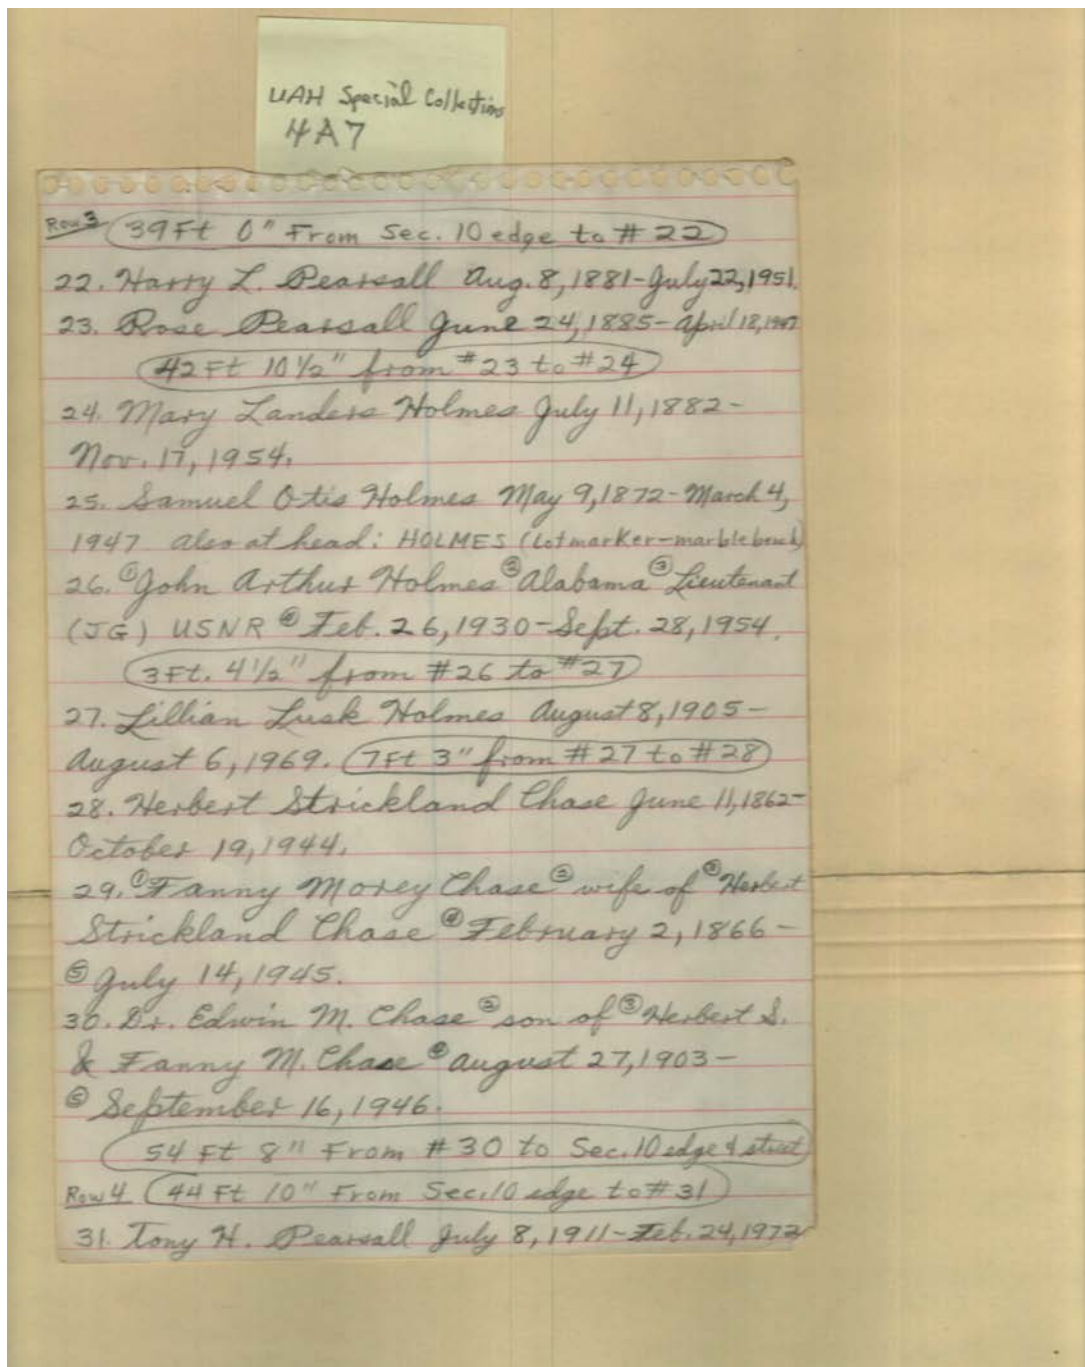 UAH Special Collections
4A7
Row 3 39Ft 0" From Sec. 10 edge to # 22
22. Harry L. Pearsall Aug. 8, 1881-July 22, 1951.
23. Rose Pearsall June 24, 1885-April 18,
42 Ft 10 1/2" from #23 to #24
24. Mary Landers Holmes July 11, 1882-
Nov. 17, 1954.
25. Samuel Otis Holmes May 9, 1872-March 4,
1947 also at head: HOLMES (Lotmarker-marble bench)
26. ①John Arthur Holmes ②Alabama ③Lieutenant
(JG) USNR ④Feb. 26, 1930-Sept. 28, 1954.
3Ft. 4 1/2" from #26 to #27
27. Lillian Lusk Holmes August 8, 1905-
August 6, 1969. 7Ft 3" from #27 to #28
28. Herbert Strickland Chase June 11, 1862-
October 19, 1944.
29. ①Fanny Morey Chase ②wife of ③Herbert
Strickland Chase ④February 2, 1866-
⑤July 14, 1945.
30. Dr. Edwin M. Chase ②son of ③Herbert S.
& Fanny M. Chase ④August 27, 1903-
⑤September 16, 1946.
54 Ft 8" From #30 to Sec. 10 edge & street
Row 4 44 Ft 10" From Sec. 10 edge to #31
31. Tony H. Pearsall July 8, 1911-Feb. 24, 1972